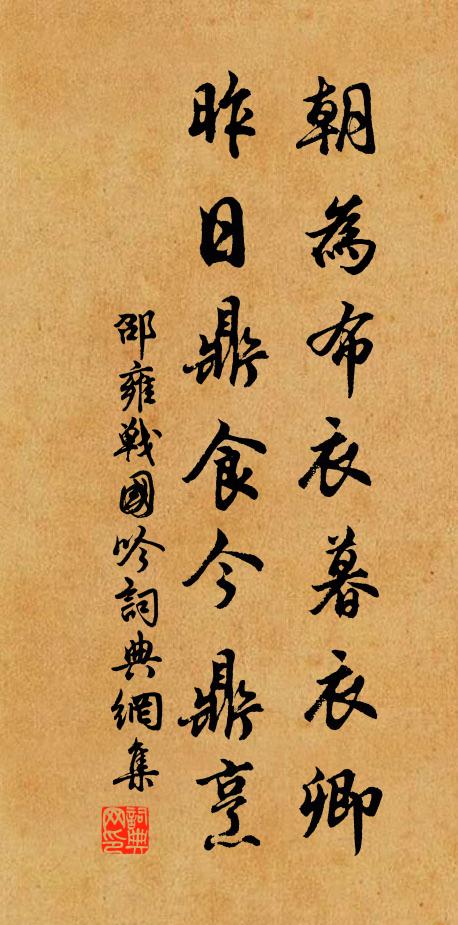 朝為布衣暮衣卿
昨日鼎食今鼎烹
邵雍戰國吟詞典網集
詞典網印